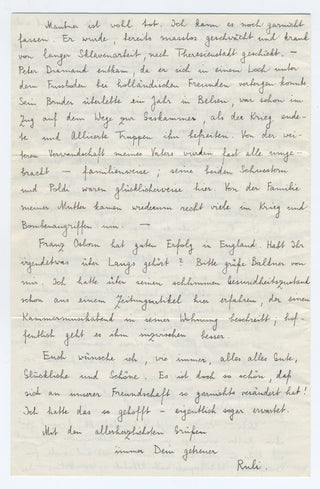 Mautner ist wohl tot. Ich kann es noch garnicht
fassen. Er wurde, bereits masslos geschwächt und krank
von langer Sklavenarbeit, nach Theresienstadt geschickt. —
Peter Diamand entkam, da er sich in einem Loch unter
dem Fussboden bei holländischen Freunden verborgen konnte.
Sein Bruder überlebte ein Jahr in Belsen, war schon im
Zug auf dem Wege zur Gaskammer, als der Krieg ende-
te und Alliierte Truppen ihn befreiten. Von der wei-
teren Verwandschaft meines Vaters wurden fast alle umge-
bracht — familienweise; seine beiden Schwestern
und Poldi waren glücklicherweise hier. Von der Familie
meiner Mutter kamen wiederum recht viele im Krieg und
Bombenangriffen um. —
Franz Osborn hat guten Erfolg in England. Habt Ihr
irgendetwas über Langs gehört? Bitte grüße Baldner von
mir. Ich hatte über seinen schlimmen Gesundheitszustand
schon aus einem Zeitungsartikel hier erfahren, der einen
Kammermusikabend in seiner Wohnung beschreibt; hof-
fentlich geht es ihm inzwischen besser.
Euch wünsche ich, wie immer, alles alles Gute,
Glückliche und Schöne. Es ist doch so schön, daß
sich an unserer Freundschaft so garnichts verändert hat!
Ich hatte das so gehofft — eigentlich sogar erwartet.
Mit den allerherzlichsten Grüßen
immer Dein getreuer
Rudi.